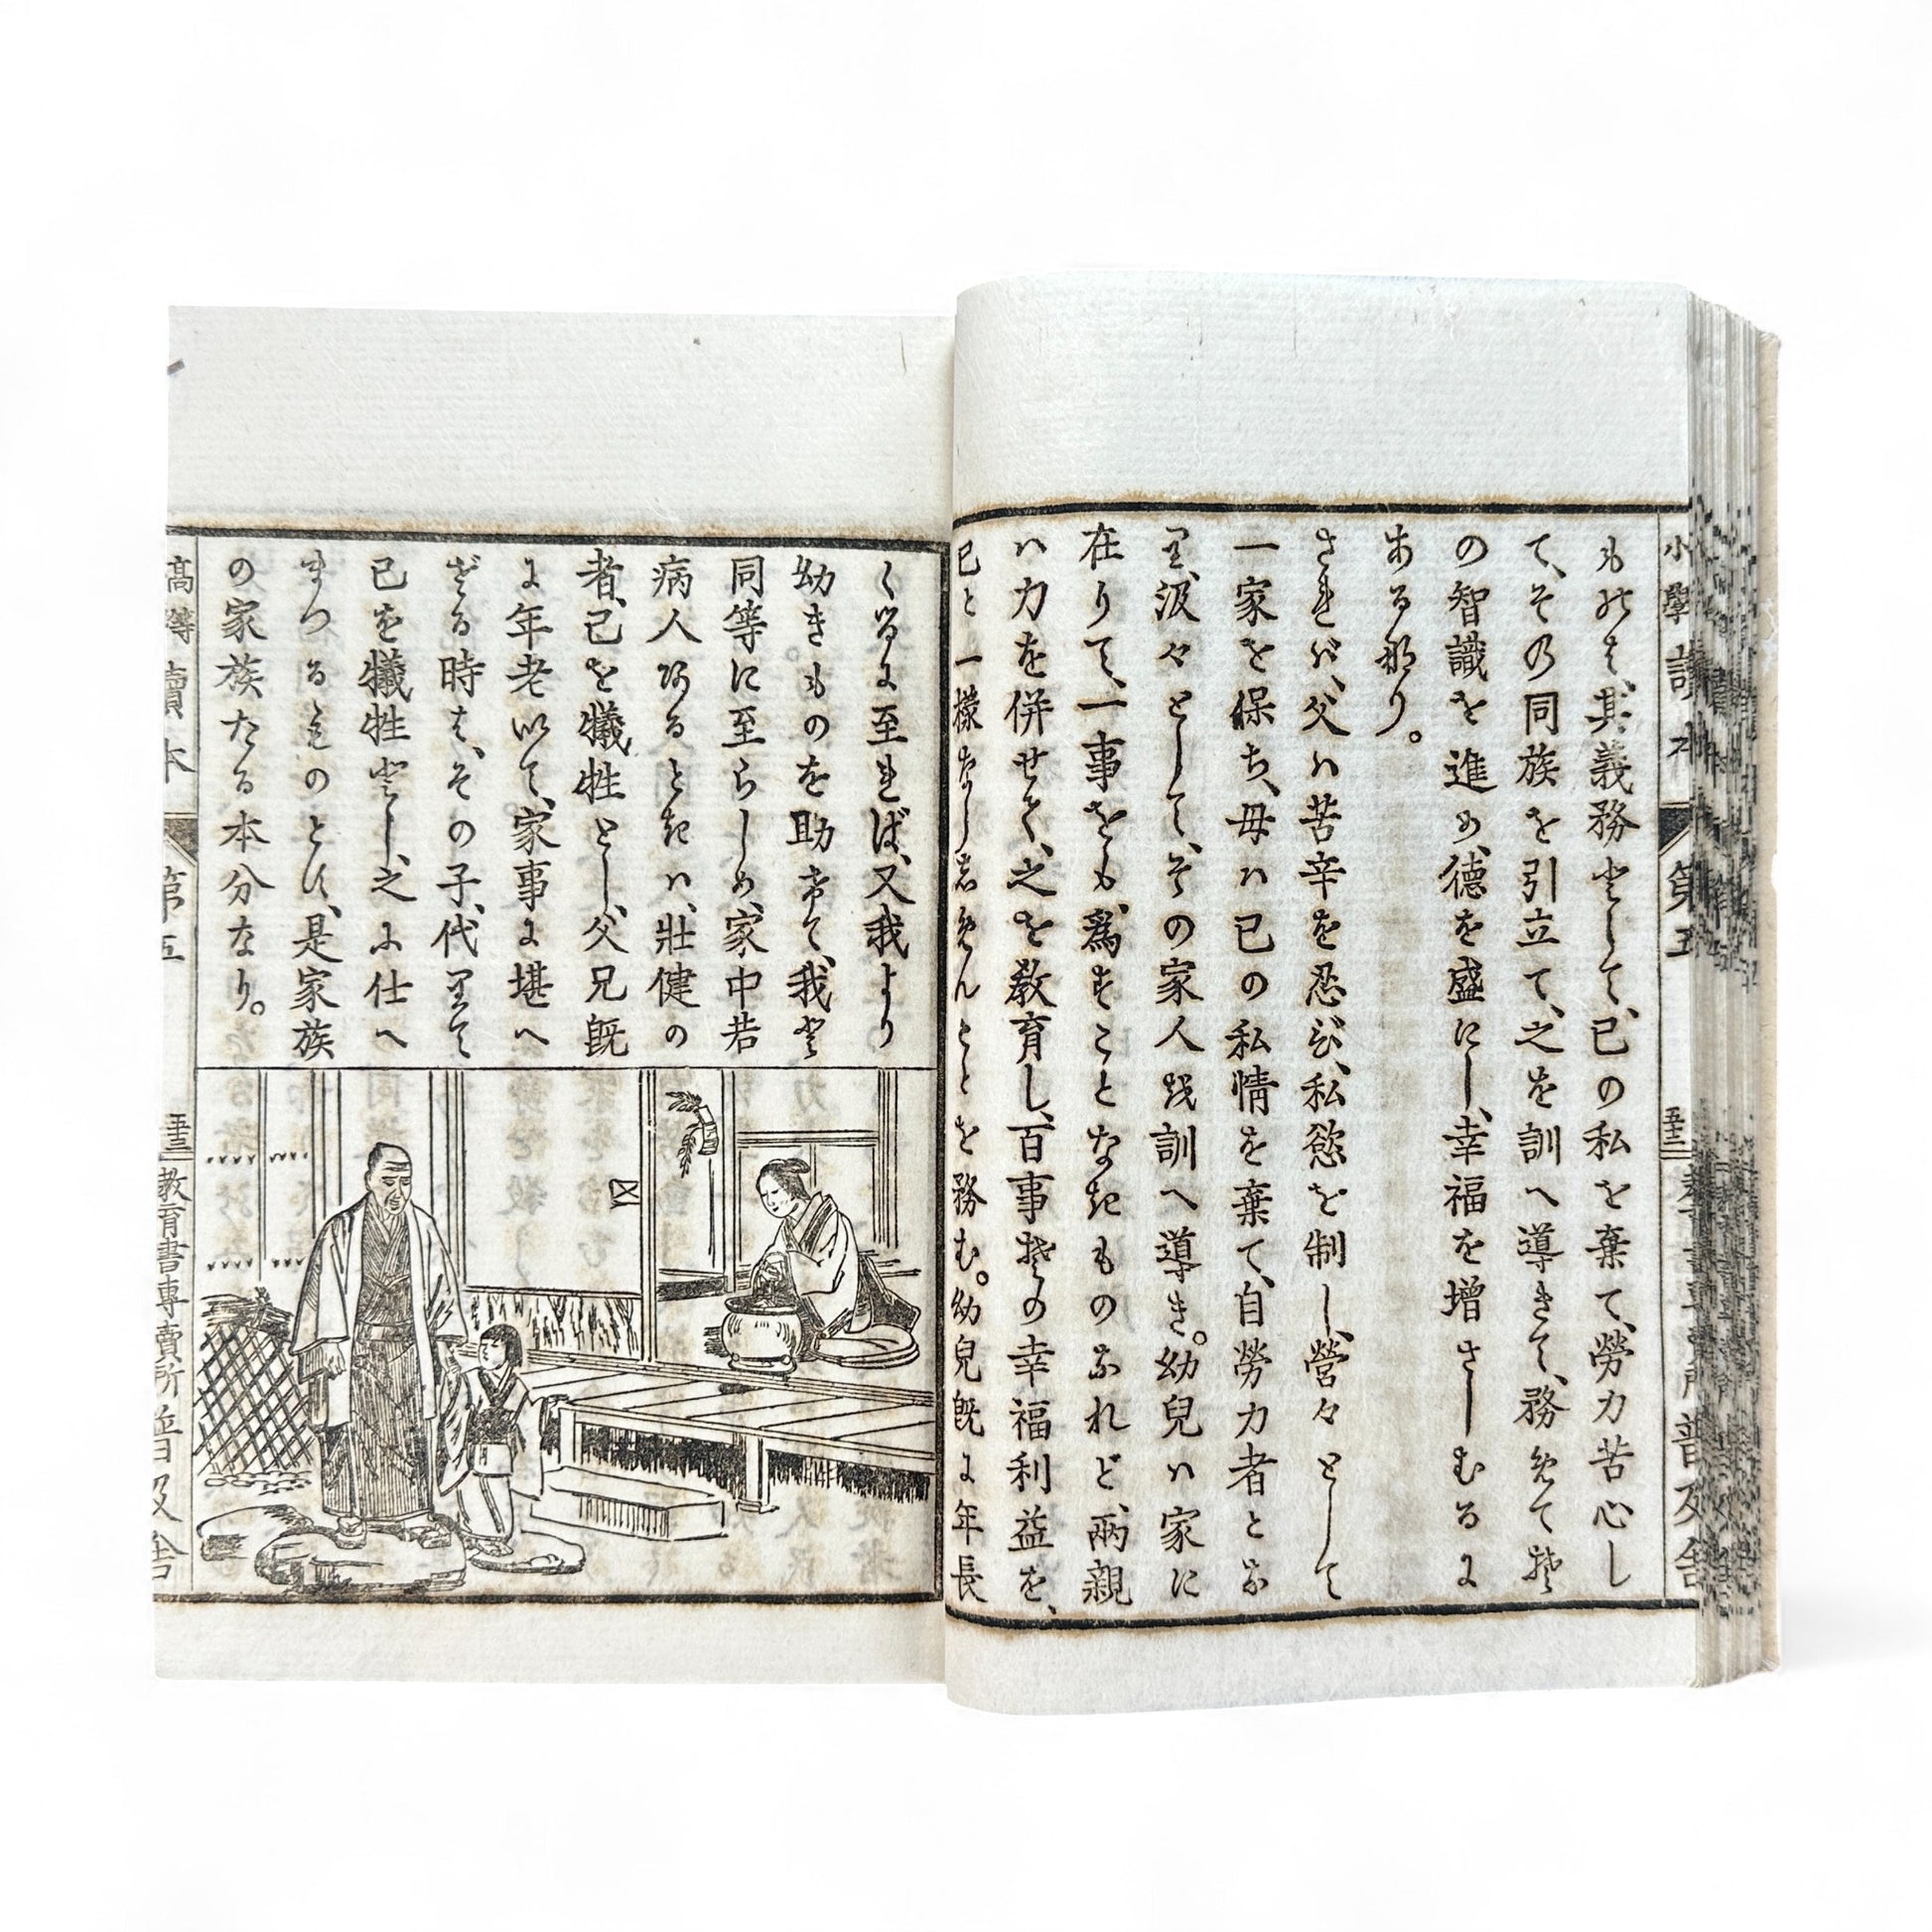 ものは、其義務として、己の私を棄て、勞力苦心し
て、その同族を引立て、之を訓へ導きて、務めて其
の智識を進め、德を盛にし、幸福を增さしむるに
あるなり。
されバ、父ハ苦辛を忍び、私慾を制し、營々として
一家を保ち、母ハ己の私情を棄て、自勞力者とな
り、汲々として、その家人を訓へ導き。幼兒ハ家に
在りて、一事をも、爲すことなきものなれど、兩親
ハ力を併せて、之を敎育し、百事其の幸福利益を、
己と一樣なしめんことを務む。幼兒既に年長
くるに至れば、又我より
幼きものを助けて、我と
同等に至らしめ、家中若
病人あるときハ、壯健の
者、己を犧牲とし、父兄既
に年老いて、家事に堪へ
ざる時は、その子、代りて
己を犧牲とし、之に仕へ
まつるものとす、是家族
の家族たる本分なり。
小學讀本
第五
五十三
高等讀本
第五
五十三
敎育書專賣所普及舍